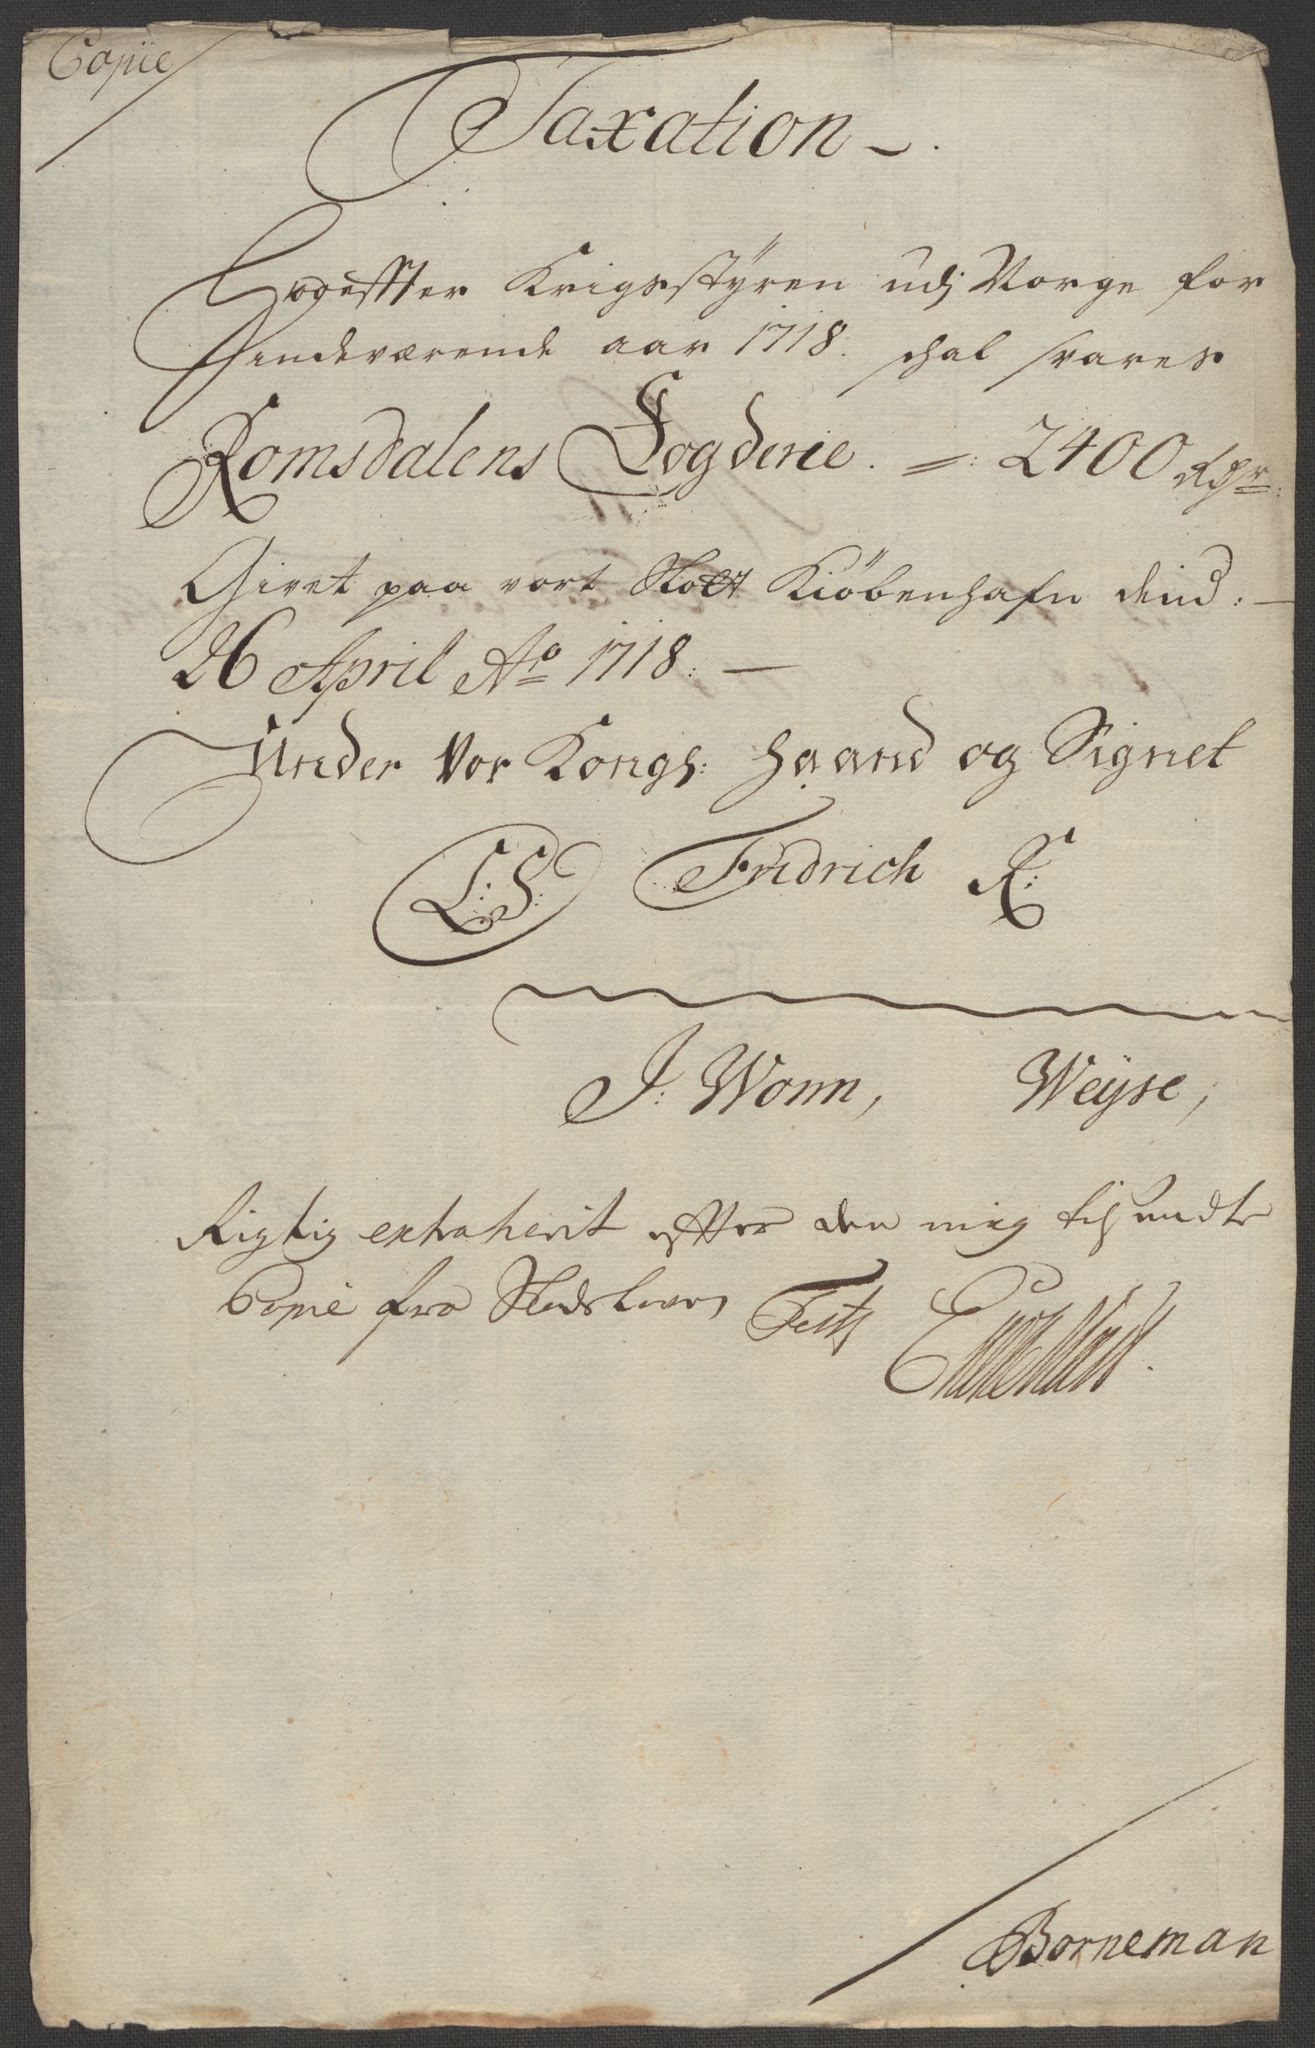 Copie
Taxation
Hvorefter Krigsstÿren udj Norge for
Indeværende aar 1718. schal svares
Romsdalens Fogderie. =: 2400 Rdr:
Givet paa vort Slott Kiöbenhafn dend:
26 April Ao 1718:
Under Vor Kongl: Haand og Signet
L:S: Fridrich R:
J: Worm, Weÿse,
Rigtig extraherit effter den mig tilsendte
Copie fra Test
Borneman